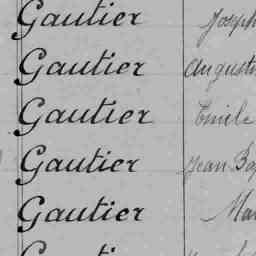 Gautier Joseph
Gautier August
Gautier Emile
Gautier Jean Bap
Gautier Ma
Gautier